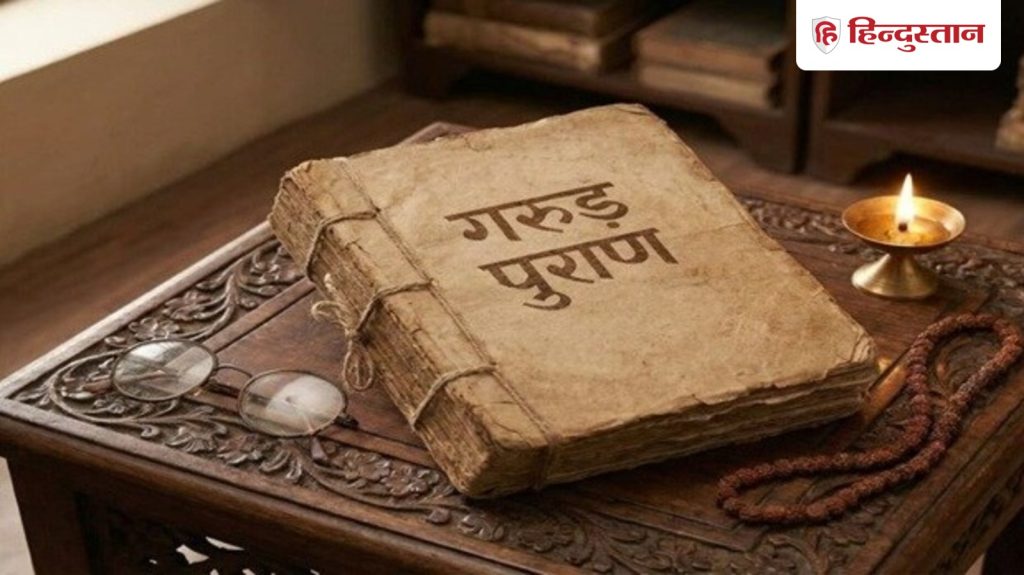 हि हिन्दुस्तान
गरुड़
पुराण